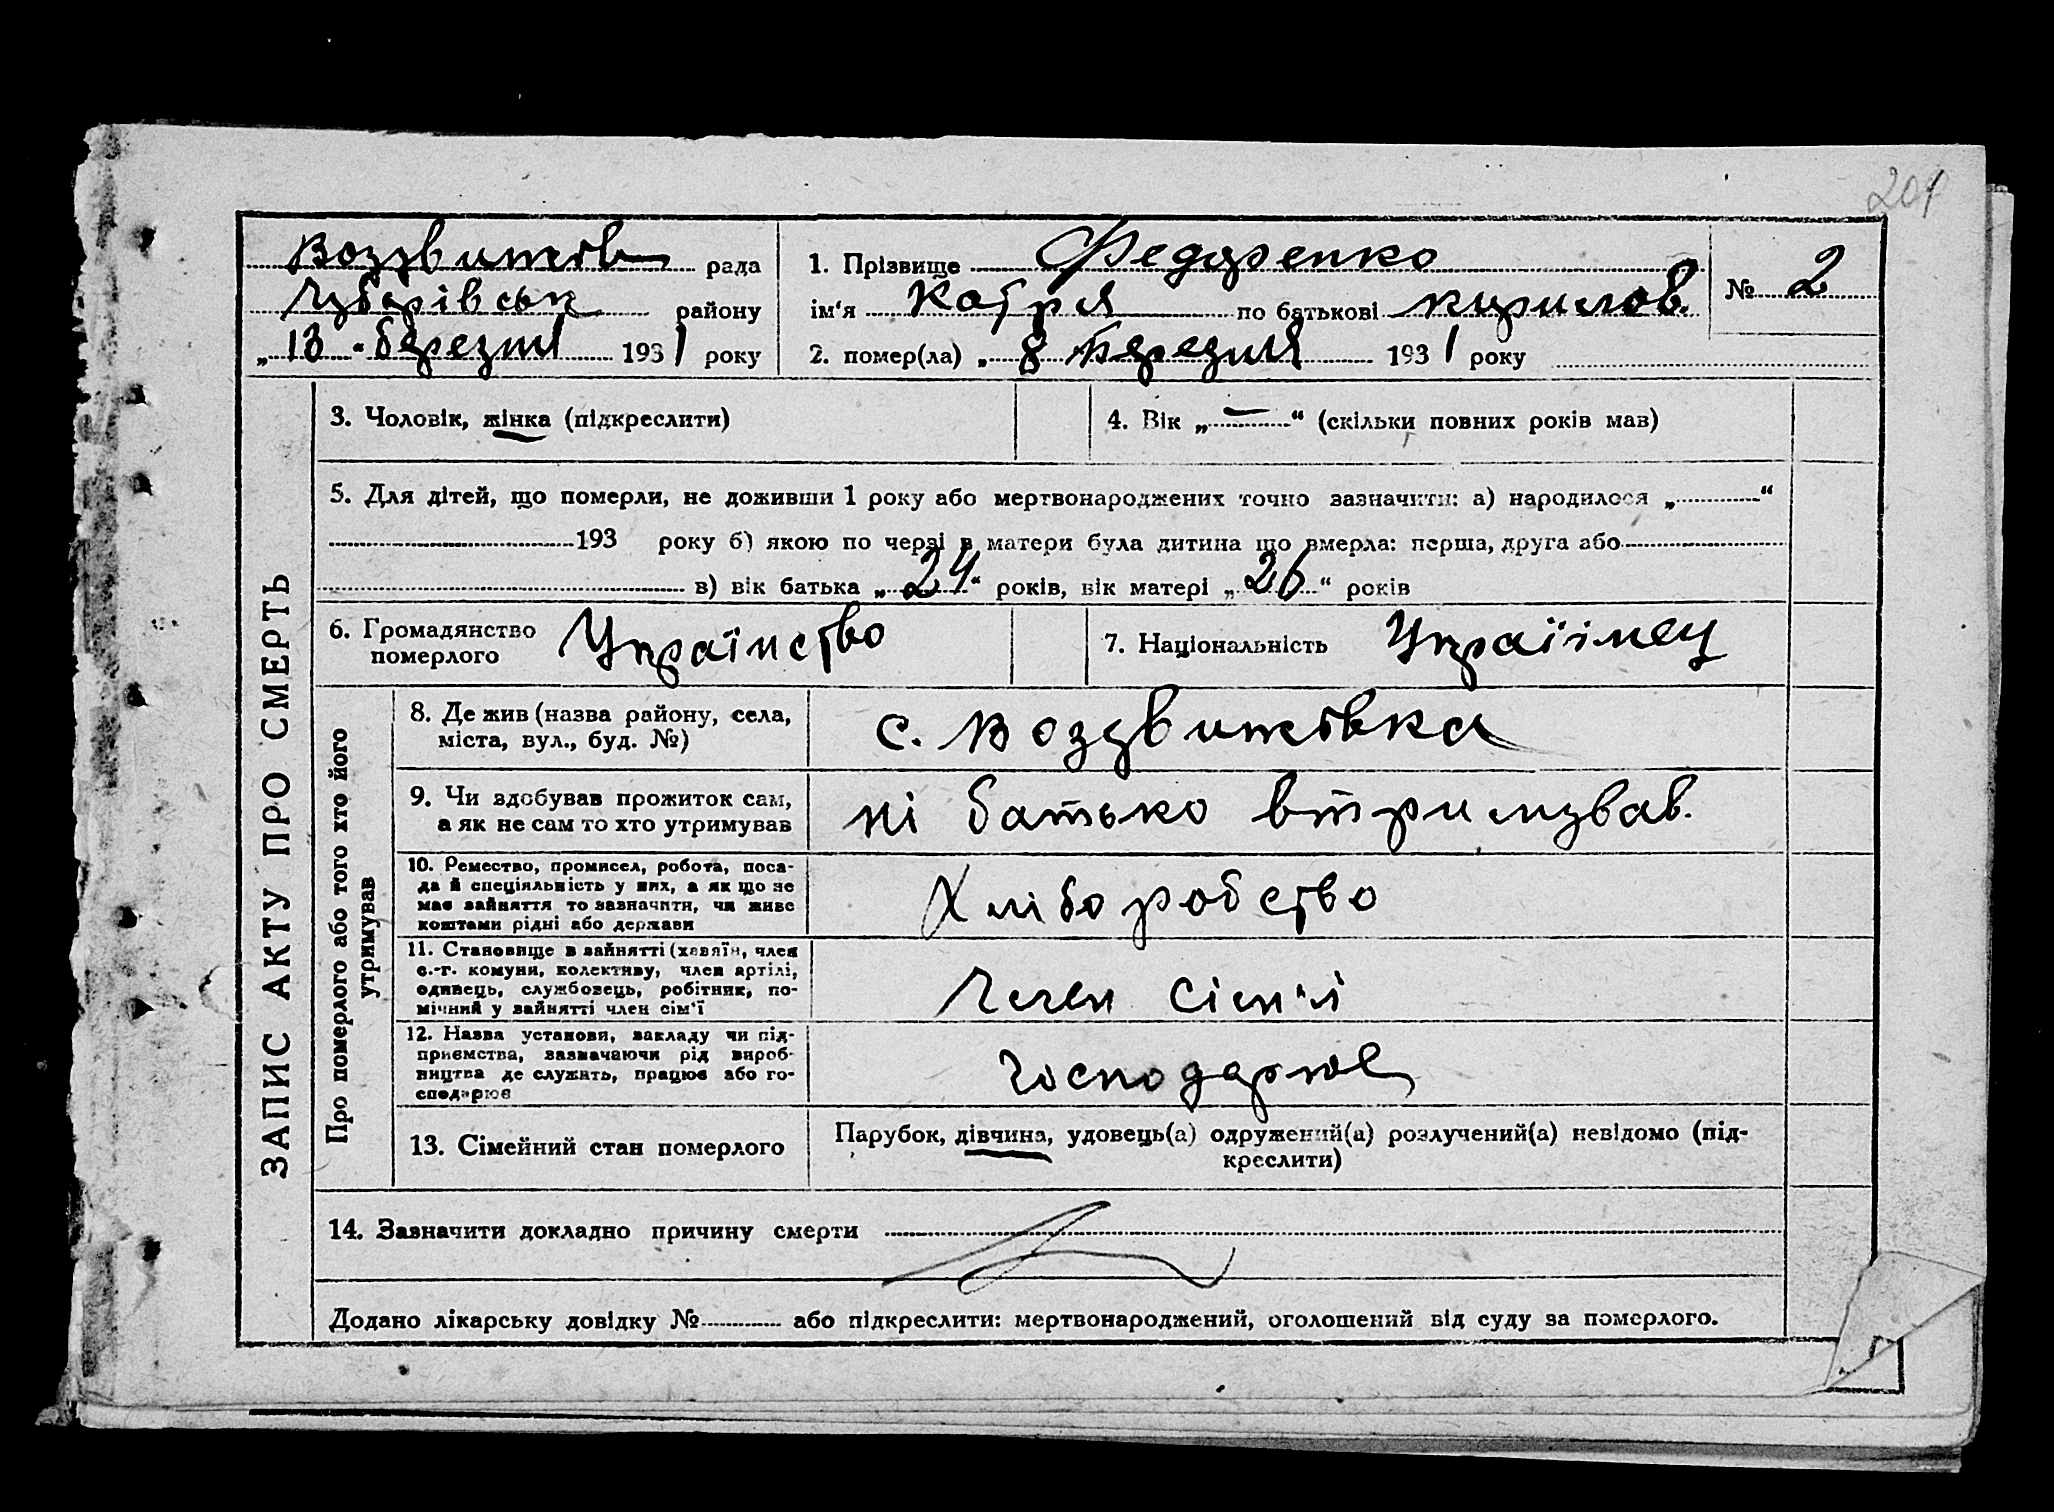 201
Воздвижев рада
Чубарівськ району
„ 13 " березня 1931 року
1. Прізвище Федоренко
№ 2
ім‘я Катря по батькові Кирилов.
2. помер(ла) „ 8 березня 1931 року
ЗАПИС АКТУ ПРО СМЕРТЬ
3. Чоловік, жінка (підкреслити)
4. Вік „ — “ (скільки повних років мав)
5. Для дітей, що померли, не доживши 1 року або мертвонароджених точно зазначити: а) народилося „ “
193 року б) якою по черзі в матери була дитина що вмерла: перша, друга або
в) вік батька „ 24 “ років, вік матері „ 26 “ років
6. Громадянство
померлого
Українство
7. Національність Украіінец
Про померлого або того хто його
утримував
8. Де жив (назва району, села,
міста, вул., буд. №)
с. Воздвижевка
9. Чи здобував прожиток сам,
а як не сам то хто утримував
ні батько втримував.
10. Ремество, промисел, робота, поса-
да й спеціяльність у них, а як що не
має зайняття то зазначити, чи живе
коштами рідні або держави
Хліборобство
11. Становище в зайнятті (хазяїн, член
с.-г. комуни, колективу, член артілі,
одинець, службовець, робітник, по-
мічний у зайнятті член сім‘ї
Член сім'ї
12. Назва установи, закладу чи під-
приємства, зазначаючи рід вироб-
ництва де служить, працює або го-
сподарює
Господарює
13. Сімейний стан померлого
Парубок, дівчина, удовець(а) одружений(а) розлучений(а) невідомо (під-
креслити)
14. Зазначити докладно причину смерти
Додано лікарську довідку № або підкреслити: мертвонароджений, оголошений від суду за померлого.